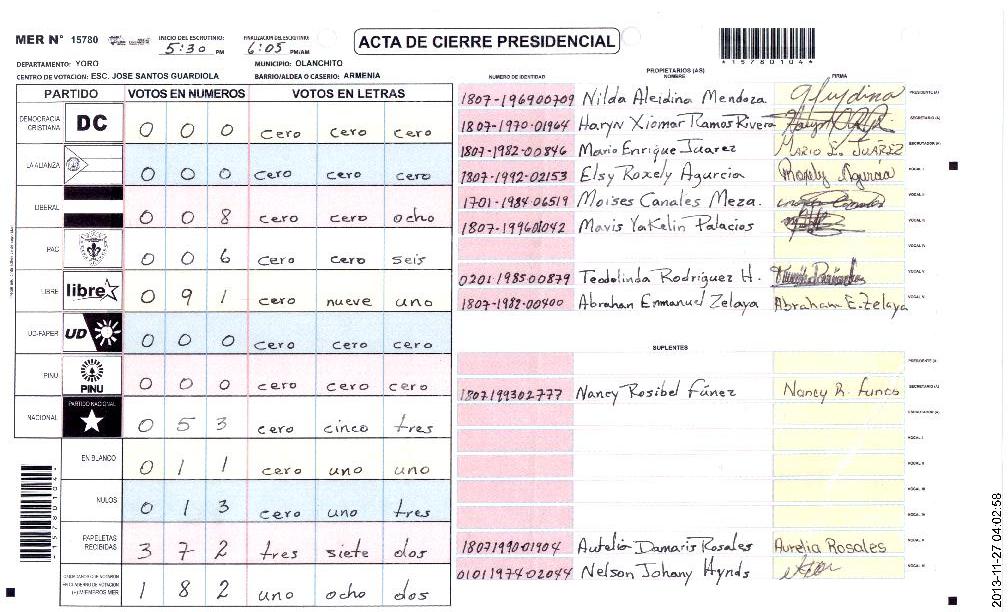 MER N° 15780
INICIO DEL ESCRUTINIO: 5:30 PM
FINALIZACION DEL ESCRUTINIO: 6:05 PM/AM
ACTA DE CIERRE PRESIDENCIAL
*15780104*
DEPARTAMENTO: YORO MUNICIPIO: OLANCHITO
CENTRO DE VOTACION: ESC. JOSE SANTOS GUARDIOLA BARRIO/ALDEA O CASERIO: ARMENIA
PARTIDO VOTOS EN NUMEROS VOTOS EN LETRAS
DEMOCRACIA CRISTIANA DC 0 0 0 cero cero cero
LA ALIANZA 0 0 0 cero cero cero
LIBERAL 0 0 8 cero cero ocho
PAC 0 0 6 cero cero seis
LIBRE libre 0 9 1 cero nueve uno
UD-FAPER UD 0 0 0 cero cero cero
PINU PINU 0 0 0 cero cero cero
NACIONAL PARTIDO NACIONAL 0 5 3 cero cinco tres
EN BLANCO 0 1 1 cero uno uno
NULOS 0 1 3 cero uno tres
PAPELETAS RECIBIDAS 3 7 2 tres siete dos
CIUDADANOS QUE VOTARON EN CUADERNO DE VOTACION (+) MIEMBROS MER 1 8 2 uno ocho dos
*15780104*
PROPIETARIOS (AS)
NUMERO DE IDENTIDAD NOMBRE FIRMA
1807-196900709 Nilda Aleidina Mendoza PRESIDENTE (A)
1807-1970-01964 Haryn Xiomar Ramos Rivera SECRETARIO (A)
1807-1982-00846 Mario Enrique Juarez MARIO E. JUÁREZ ESCRUTADOR (A)
1807-1992-02153 Elsy Roxely Agurcia Roxely Agurcia VOCAL I
1701-1984-06519 Moises Canales Meza. VOCAL II
1807-199601042 Mavis Yakelin Palacios VOCAL III
VOCAL IV
0201-198500879 Teodolinda Rodriguez H. VOCAL V
1807-1982-00400 Abrahan Enmanuel Zelaya Abraham E. Zelaya VOCAL VI
SUPLENTES
PRESIDENTE (A)
1807199302777 Nancy Rosibel Fúnez Nancy R. Funes SECRETARIO (A)
ESCRUTADOR (A)
VOCAL I
VOCAL II
VOCAL III
VOCAL IV
1807199001904 Aurelia Damaris Rosales Aurelia Rosales VOCAL V
0101197402044 Nelson Johany Hynds VOCAL VI
2013-11-27 04:02:58